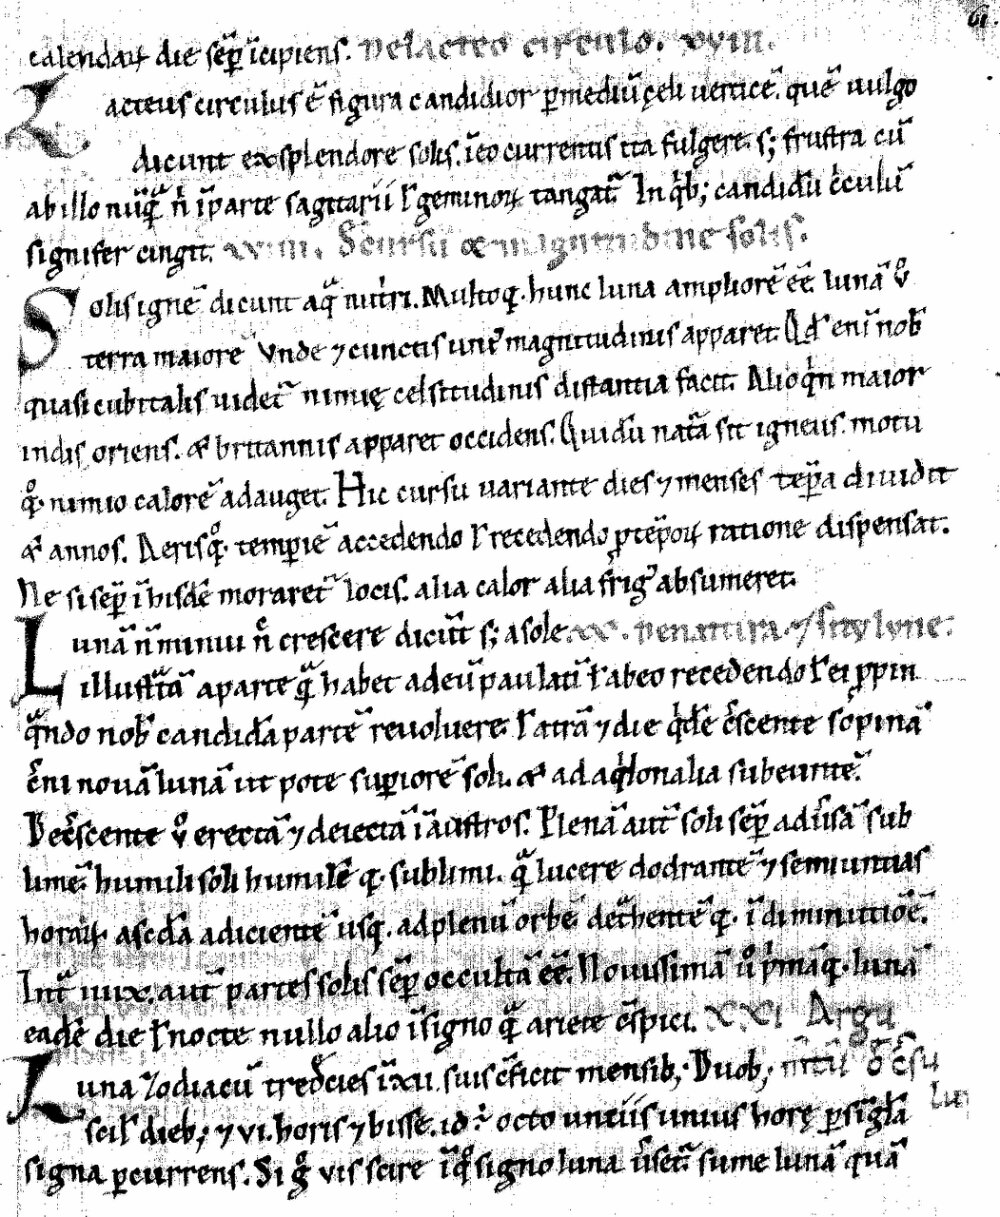 calendaꝝ die sēp īcipiens. De lacteo circulo. xviii.
Lacteus circulus ē figura candidior ꝑ mediū cęli uerticē. quē uulgo
dicunt ex splendore solis. ī eo currentis ita fulgere. s; frustra cū
ab illo nūqͣ n̄ ī parte sagittarii ł geminoꝝ tangat᷑. In qͥb; candidū cͥculū
signifer cingit. xviiii. De cursu & magnitudine solis.
Solis ignē dicunt aqͣ nutͥri. Multoqꝫ hunc luna ampliorē eē. lunā ů
terra maiorē. Vnde ⁊ cunctis uniꝰ magnitudinis apparet. Qd enī nob̄
quasi cubitalis uidet᷑ nimię celsitudinis distantia facit. Alioqͥn maior
indis oriens. & britannis apparet occidens. Qui dū natͣa sit igneus. motu
qͦqꝫ nimio calorē adauget. Hic cursu variante dies ⁊ menses tēpa diuidit
& annos. Aerisqꝫ temperiē accedendo ł recedendo ꝓ tēpoꝝ ratione dispensat.
Ne si sēp ī hisdē moraret᷑ locis. alia calor alia frigꝰ absumeret.
Lunā n̄ minui n̄ crescere dicūt s; a sole xx. De natura ⁊ situ lune:
illustͣtā a parte qͣ habet ad eū paulatī ł ab eo recedendo ł ei ꝓpin
qͣndo nob̄ candidā partē reuoluere. ł atrā ⁊ die qͥdē cͤscente sꝑ pinā
cͤni nouā lunā ut pote suꝑiorē soli. & ad aqͥlonalia subeuntē.
Decͤscente ů erectā ⁊ deiectā ī austros. Plenā aut̄ soli sēp aduͤsā sub
limē. humili soli humilē qꝫ sublimi. qͣ lucere dodrantē ⁊ semiuntias
horaꝝ. a scdā adicientē usqꝫ ad plenū orbē detͣhentēqꝫ ī diminutiōē.
Intͣ xiiii. aut̄ partes solis sēp occultā eē. Nouissimā ů pͥmāqꝫ lunā
eadē die ł nocte nullo alio ī signo qͣ ariete cͦspici. xxi Argu
Luna Zodiacū tredecies ī xii. suis cͦficit mensib; Duob; m̄tū de cursu
scil dieb; ⁊ vi. horis ⁊ bissē. id ē octo untiis unius horę ꝑ singͣla lu
signa ꝑcurrens. Si gͦ vis scire ī qͦ signo luna uͤset᷑ sume lunā quā